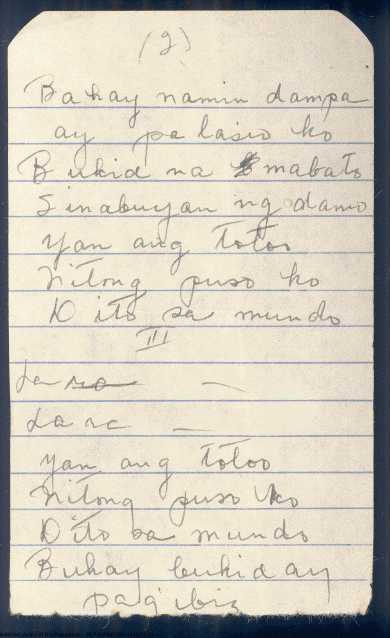 (2)
Bahay namin dampa
ay palasio ko
Bukid na mabato
Sinabuyan ng damo
yan ang totoo
Nitong puso ko
Dito sa mundo
III
La ra —
La ra —
yan ang totoo
Nitong puso ko
Dito sa mundo
Buhay bukid ay
pag ibig